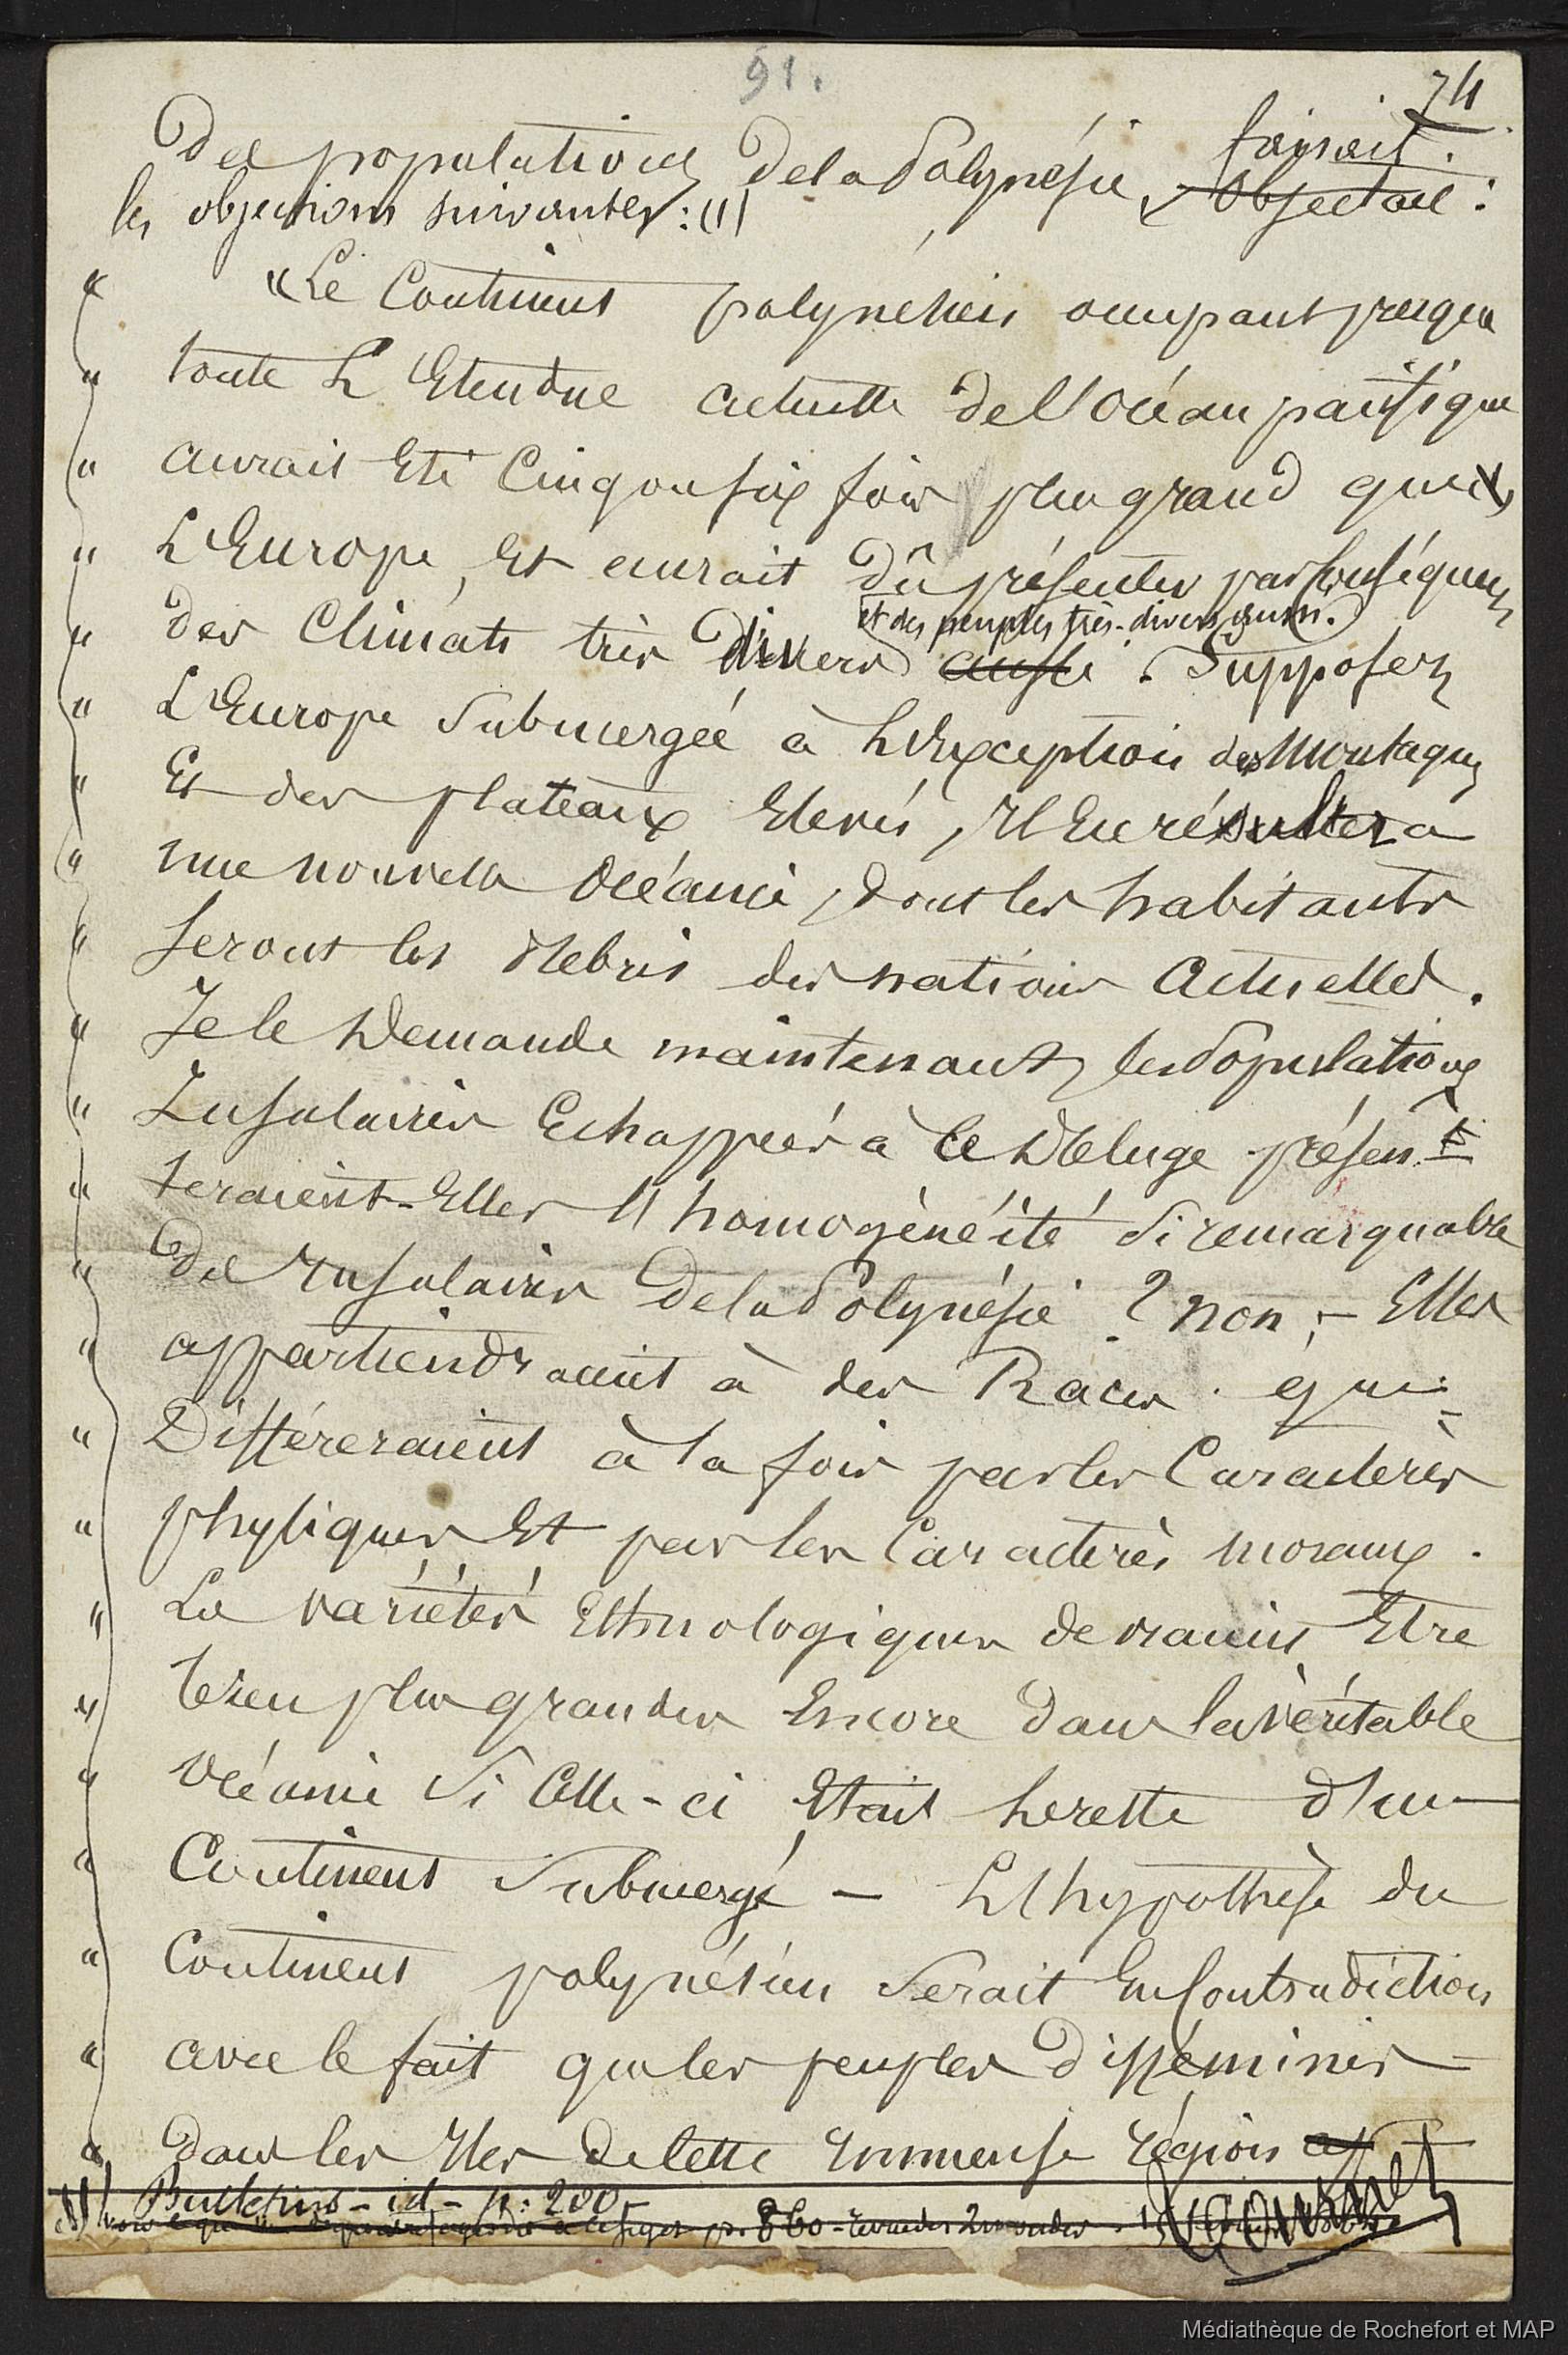 91.
74
des populations de la Polynésie, faisait.
Objectait :
les objections suivantes : (1)
" "Le Continent polynésien occupant presque
" toute L'Etendue actuelle de l'océan pacifique
" aurait Eté Cinq ou six fois plus grand que
" L'Europe, Et aurait dû présenter par Conséquent
et des peuples très-divers aussi.
" des Climats très divers aussi. Supposez
" L'Europe submergée à L'Exception des Montagnes
" Et des plateaux Elevés, Il En résultera
" une nouvelle Océanie, dont les habitants
" seront les débris des nations Actuelles.
" Je le Demande maintenant, les Populations
" Insulaires Echappées à ce Déluge présen-
" teraient-Elles l'homogénéité si remarquable
" des Insulaires de la Polynésie ? non ; - Elles
" appartiendraient à des Races qui
" Différeraient à la fois par les Caractères
" physiques Et par les Caractères moraux.
" Les variétés Ethnologiques devraient Etre
" bien plus grandes Encore dans la véritable
" Océanie si Celle-ci Etait le reste d'un
" Continent submergé — L'hypothèse du
" Continent polynésien serait En Contradiction
" avec le fait que les peuples disséminés
" dans les Iles de cette Immense région
(1) Bulletins - id - p: 280 -
p. 860 - revue des 2 mondes - 15